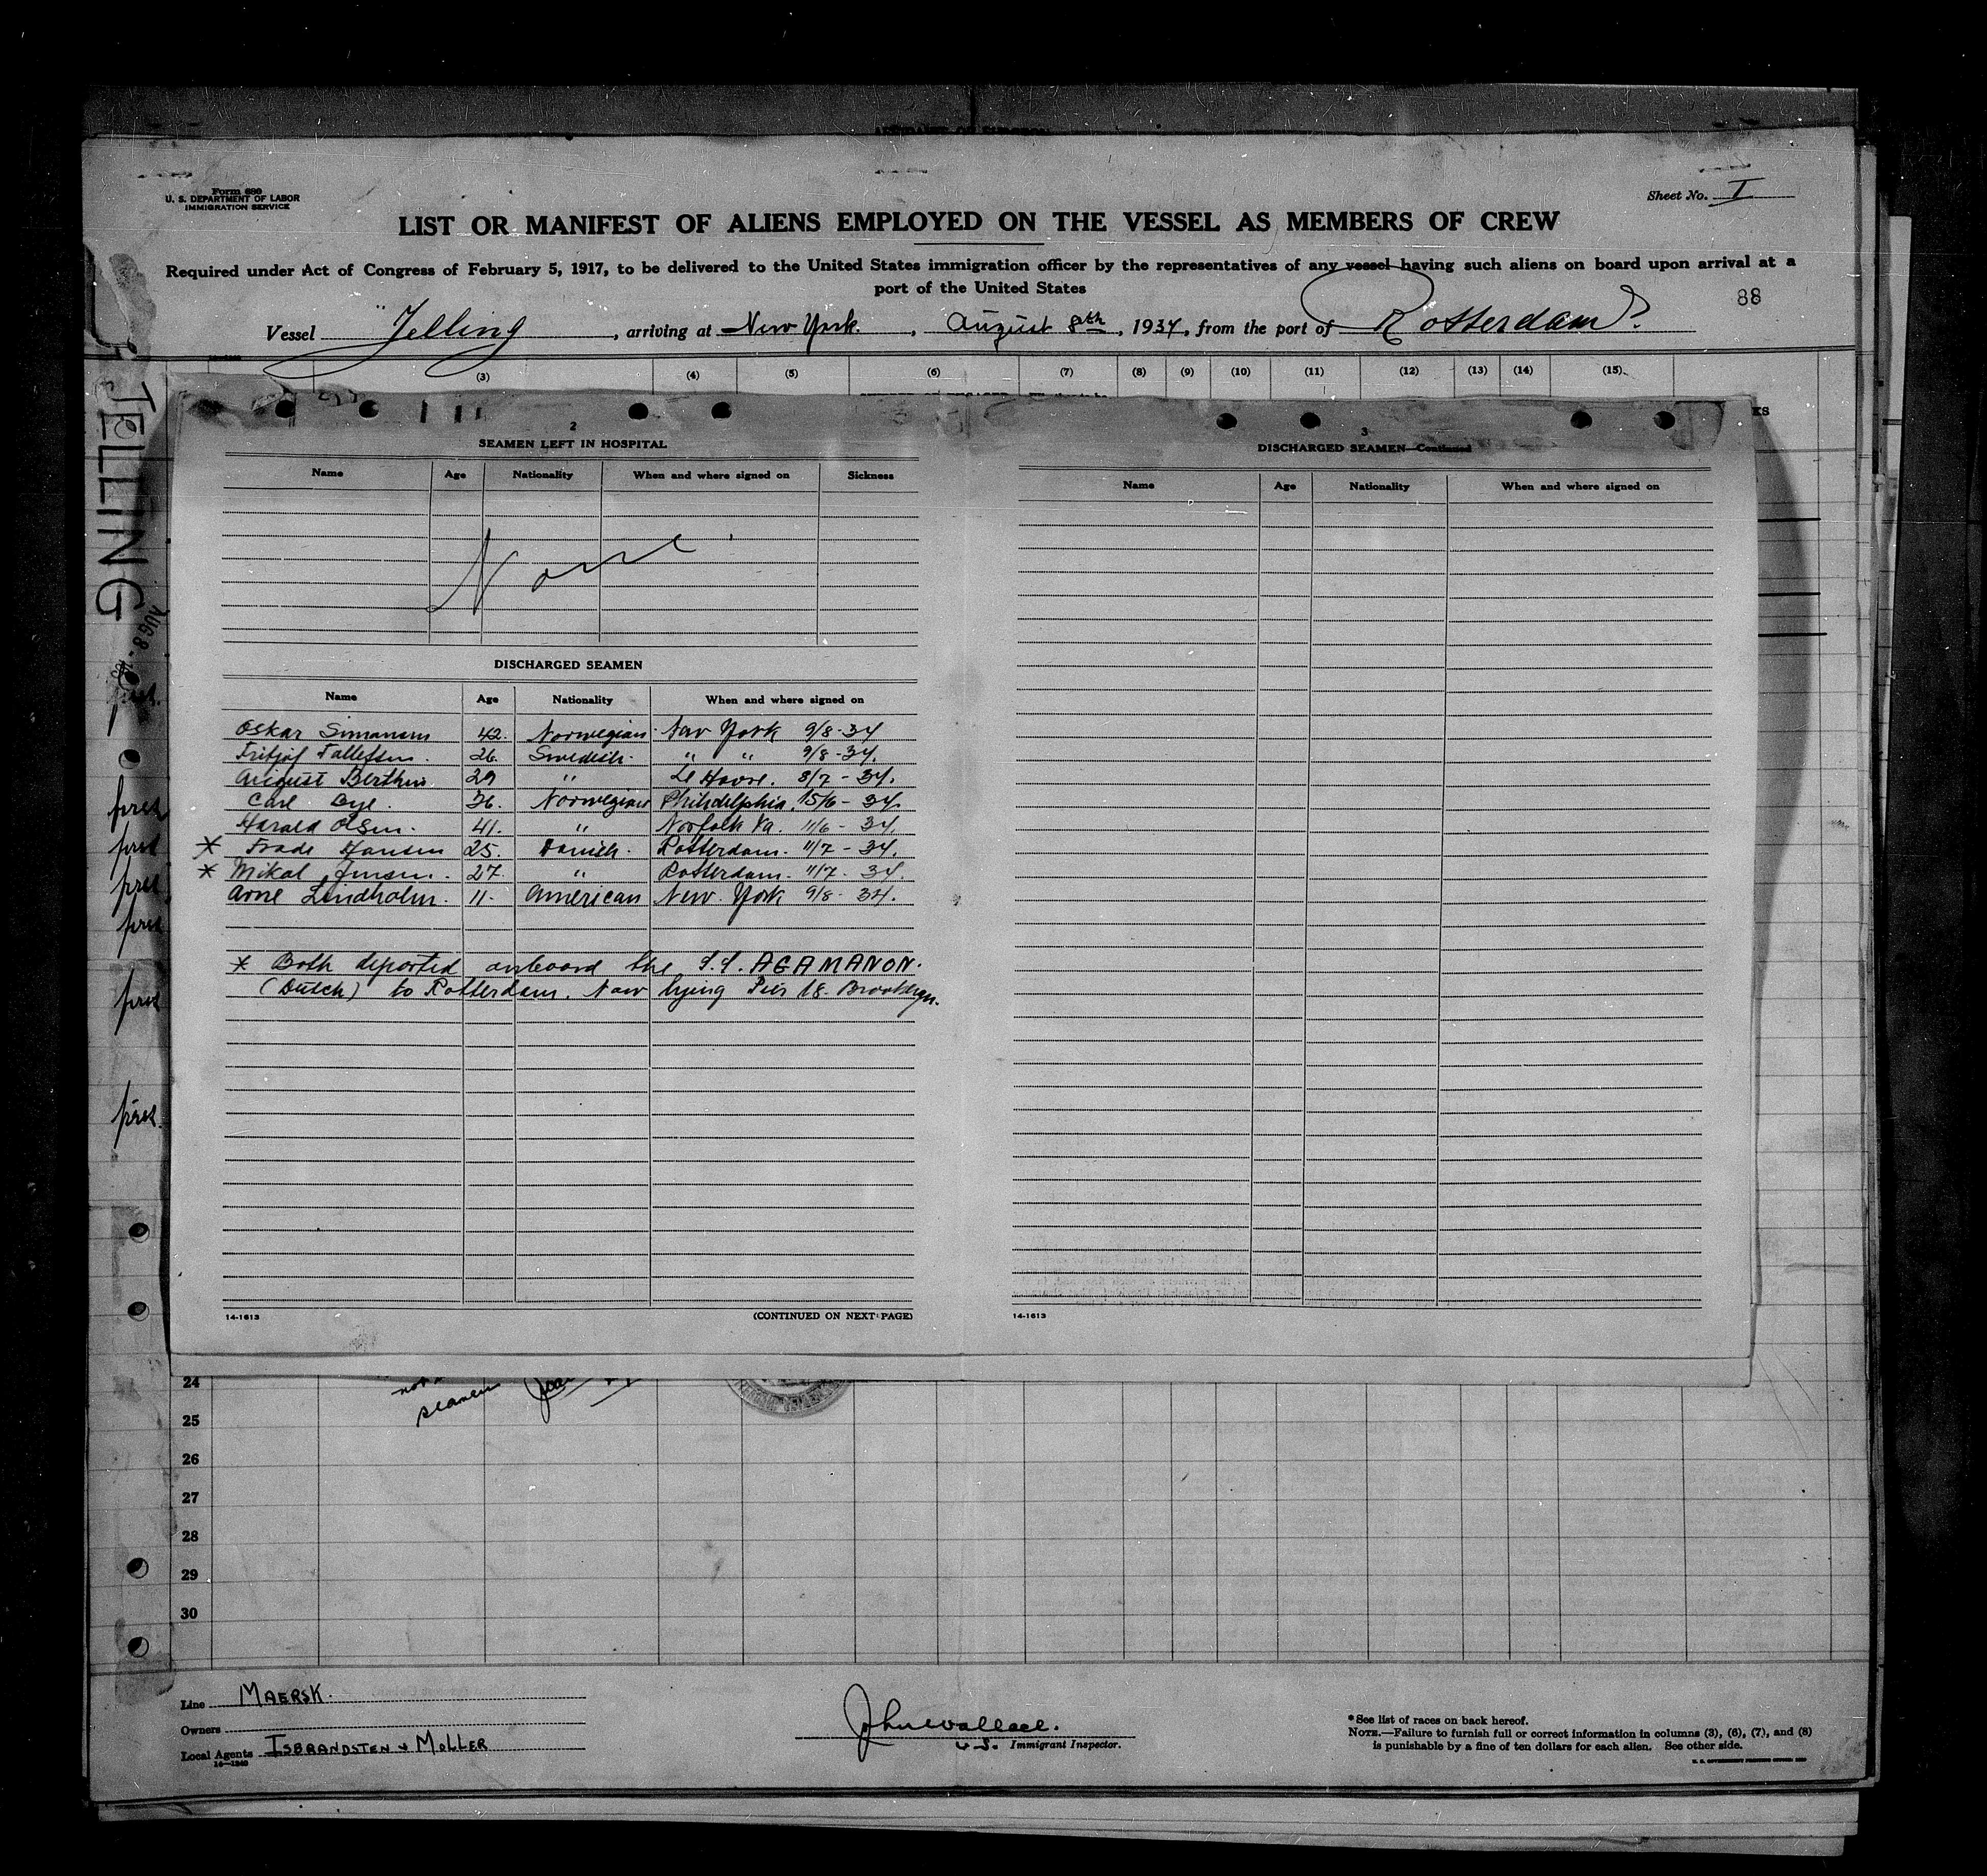 Form 680
U. S. DEPARTMENT OF LABOR
IMMIGRATION SERVICE
Sheet No. I
LIST OR MANIFEST OF ALIENS EMPLOYED ON THE VESSEL AS MEMBERS OF CREW
Required under Act of Congress of February 5, 1917, to be delivered to the United States immigration officer by the representatives of any vessel having such aliens on board upon arrival at a
port of the United States
88
Vessel "Jelling, arriving at New York., August 8th, 1934, from the port of Rotterdam
(3) (4) (5) (6) (7) (8) (9) (10) (11) (12) (13) (14) (15)
JELLING
AUG 8
2
SEAMEN LEFT IN HOSPITAL
Name Age Nationality When and where signed on Sickness
None
DISCHARGED SEAMEN
Name Age Nationality When and where signed on
Oskar 42. Norwegian New York 9/8-34
Fritjof 26. Swedish. " " 9/8-34.
August 29 " Le Havre. 8/7-34.
Carl Bye. 36. Norwegian Philidelphia. 15/6-34.
Harald Olsen. 41. " Norfolk Va. 11/6-34.
* Hansen 25. Danish. Rotterdam. 11/7-34.
* Mikal Jensen. 27. " Rotterdam. 11/7-34.
Arne Lindholm. 11. American New. York 9/8-34.
* Both deported onboard the S.S. AGAMANON.
(Dutch) to Rotterdam. Now lying Pier 18. Brooklyn.
14-1613 (CONTINUED ON NEXT PAGE)
3
DISCHARGED SEAMEN—Continued
Name Age Nationality When and where signed on
14-1613
pres
pres
pres
pres
pres
pres.
24
seamen
25
26
27
28
29
30
Line MAERSK.
Owners
Local Agents ISBRANDSTEN & MOLLER
14—1240
John Wallace.
U.S. Immigrant Inspector.
* See list of races on back hereof.
NOTE.—Failure to furnish full or correct information in columns (3), (6), (7), and (8)
is punishable by a fine of ten dollars for each alien. See other side.